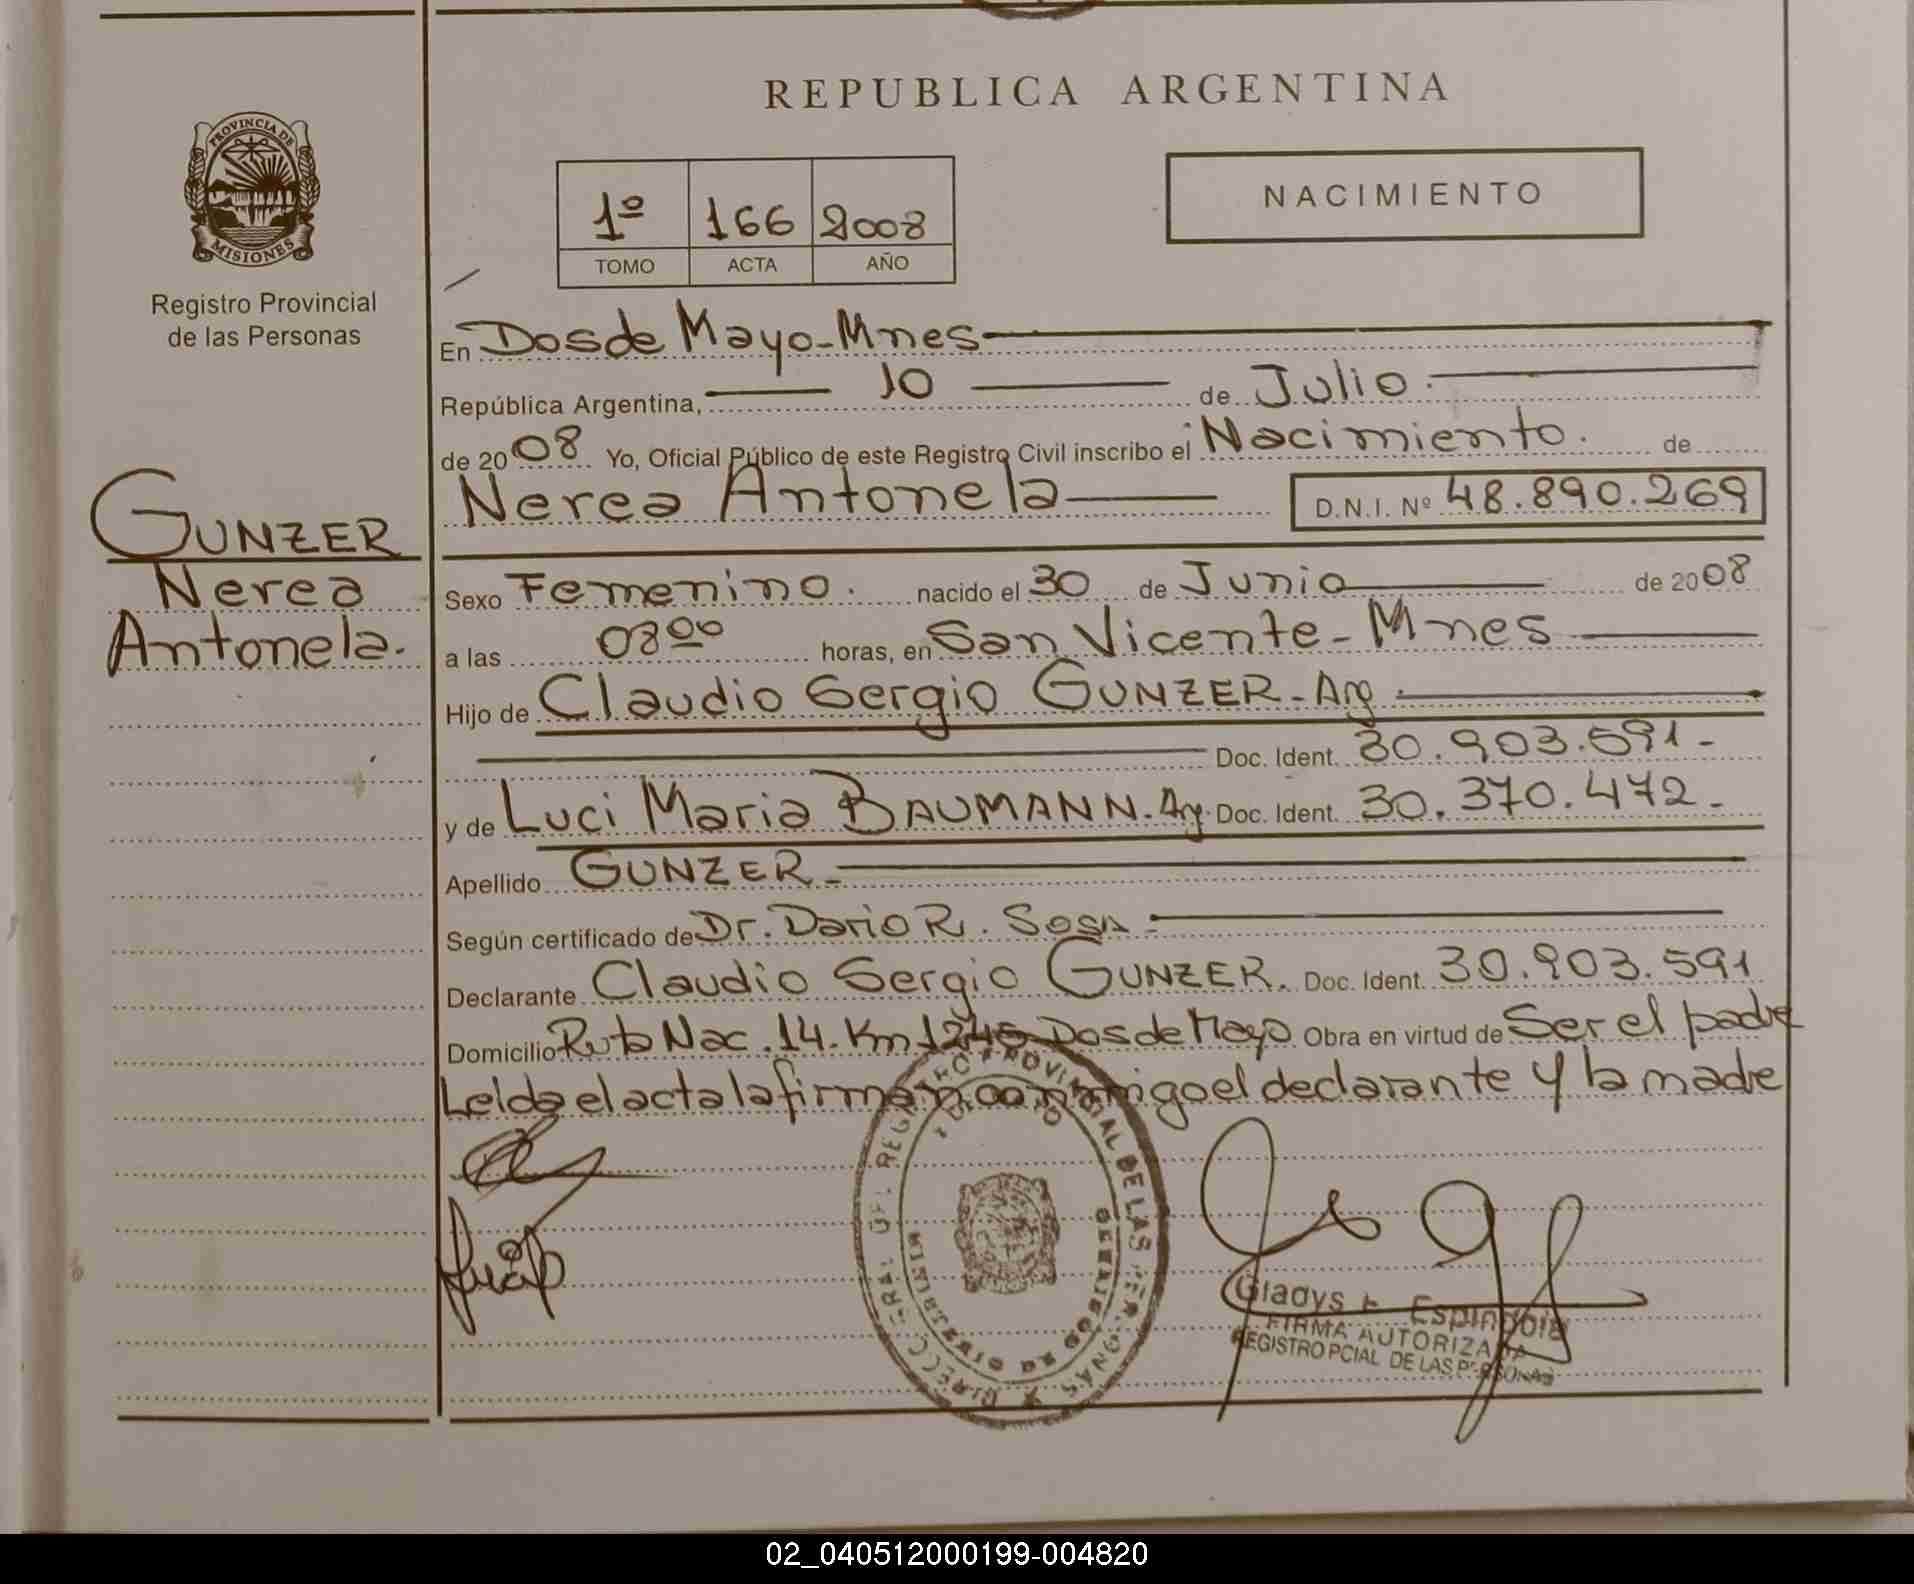 REPUBLICA ARGENTINA
PROVINCIA DE
MISIONES
Registro Provincial
de las Personas
NACIMIENTO
1º 166 2008
TOMO ACTA AÑO
En Dos de Mayo-Mnes
República Argentina, 10 de Julio
de 2008 Yo, Oficial Público de este Registro Civil inscribo el Nacimiento. de
Nerea Antonela D.N.I. Nº 48.890.269
GUNZER
Nerea
Antonela.
Sexo Femenino. nacido el 30 de Junio de 2008
a las 08 00 horas, en San Vicente-Mnes
Hijo de Claudio Sergio GUNZER-Arg
Doc. Ident. 30.903.591-
y de Luci Maria BAUMANN. Arg. Doc. Ident. 30.370.472-
Apellido GUNZER-
Según certificado de Dr. Dario R. Sosa-
Declarante Claudio Sergio GUNZER. Doc. Ident. 30.903.591
Domicilio Ruta Nac. 14. Km 1245 Dos de Mayo Obra en virtud de Ser el padre
Leida el acta la firman conmigo el declarante y la madre
Gladys Espindola
FIRMA AUTORIZADA
REGISTRO PCIAL DE LAS PERSONAS
02_040512000199-004820